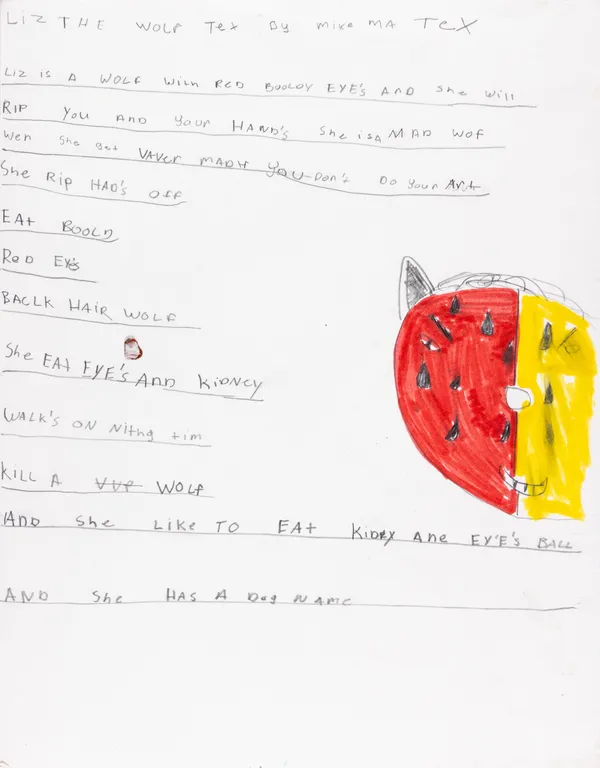 Liz THE WOLF TEX By mike MA TEX
Liz is A WOLF With RED BOOLOY EYE'S AND She will
RIP You AND your HAND'S She isA MAD WOF
Wen She get VAVER MADY YOU Don't Do your Art
She Rip HAD'S OFF
EAt BOOLD
RED EYes
BACLK HAIR WOLF
She EAt EYE'S AND KiDNEY
WALK'S ON Nithg tim
KILL A WOLF
AND She LiKE TO EAT KiDRY ANE EY'E'S BALL
AND She HAS A Dog NAME